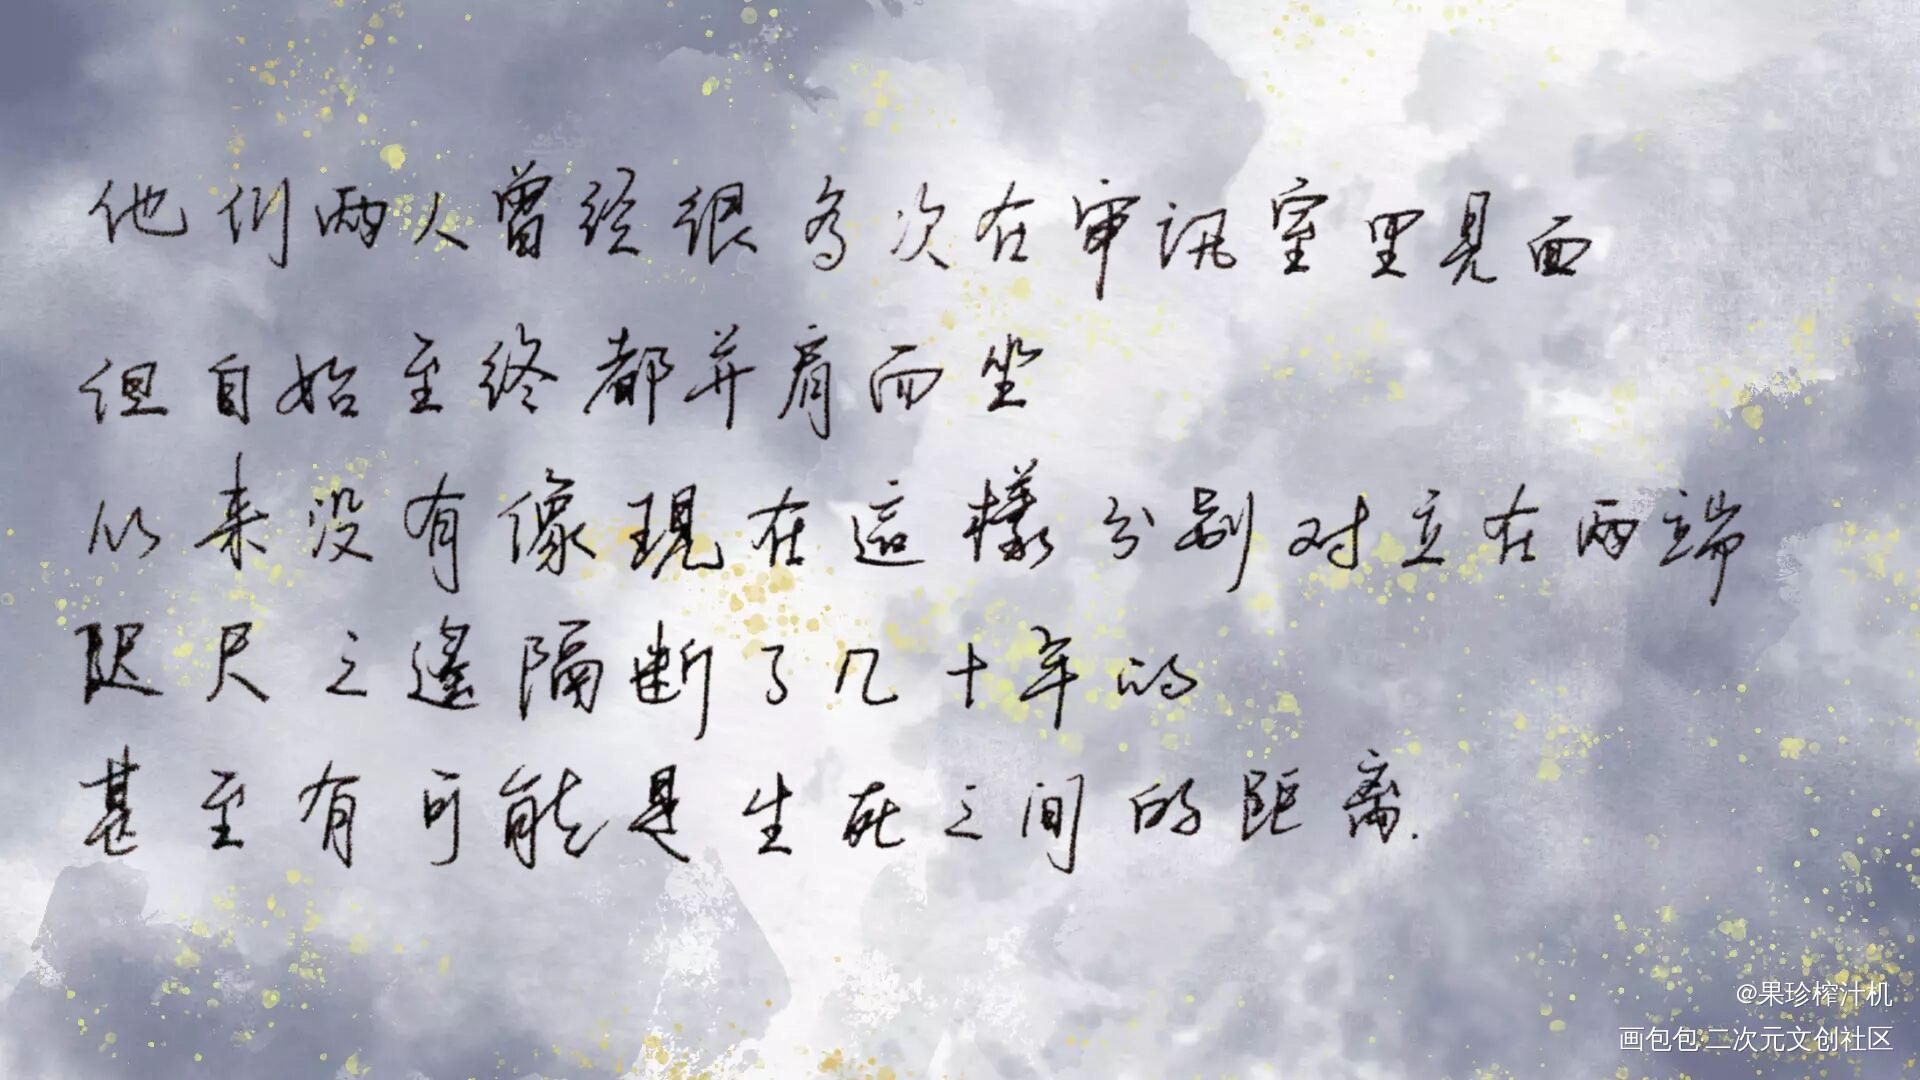 他们两人曾经很多次在审讯室里见面
但自始至终都并肩而坐
从来没有像現在這樣分别对立在两端
咫尺之遙隔断了几十年的
甚至有可能是生死之间的距离.
@果珍榨汁机
画包包·二次元文创社区